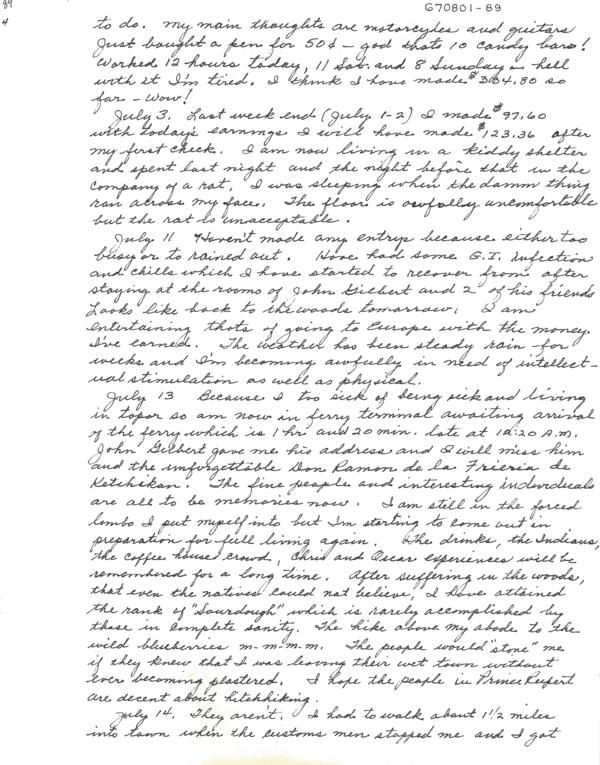 89
4
G70801-89
to do. My main thoughts are motorcycles and guitars
Just bought a pen for 50¢ - god thats 10 candy bars!
Worked 12 hours today, 11 Sat. and 8 Sunday - hell
with it I'm tired. I think I have made $354.80 so
far - Wow!
July 3. Last week end (July 1-2) I made $97.60
with todays earnings I will have made $123.36 after
my first check. I am now living in a kiddy shelter
and spent last night and the night before that in the
company of a rat. I was sleeping when the damm thing
ran across my face. The floor is awfully uncomfortable
but the rat is unacceptable.
July 11 Haven't made any entrys because either too
busy or to rained out. Have had some G.I. infection
and chills which I have started to recover from after
staying at the rooms of John Gilbert and 2 of his friends
Looks like back to the woods tomorrow. I am
entertaining thots of going to Europe with the money
I've earned. The weather has been steady rain for
weeks and I'm becoming awfully in need of intellect-
ual stimulation as well as physical.
July 13 Because I too sick of being sick and living
in so am now in ferry terminal awaiting arrival
of the ferry which is 1 hr and 20 min. late at 12:20 A.M.
John Gilbert gave me his address and I will miss him
and the unforgettable Don Ramon de la de
Ketchikan. The fine people and interesting individuals
are all to be memories now. I am still in the forced
limbo I put myself into but I'm starting to come out in
preparation for full living again. The drinks, the Indians,
the coffee house crowd, Chris and Oscar experiences will be
remembered for a long time. After suffering in the woods,
that even the natives could not believe, I have attained
the rank of "Sourdough" which is rarely accomplished by
those in complete sanity. The hike above my abode to the
wild blueberries m-m-m-m. The people would "stone" me
if they knew that I was leaving their wet town without
ever becoming plastered. I hope the people in Prince Rupert
are decent about hitchhiking.
July 14. They aren't. I had to walk about 1 1/2 miles
into town when the customs men stopped me and I got